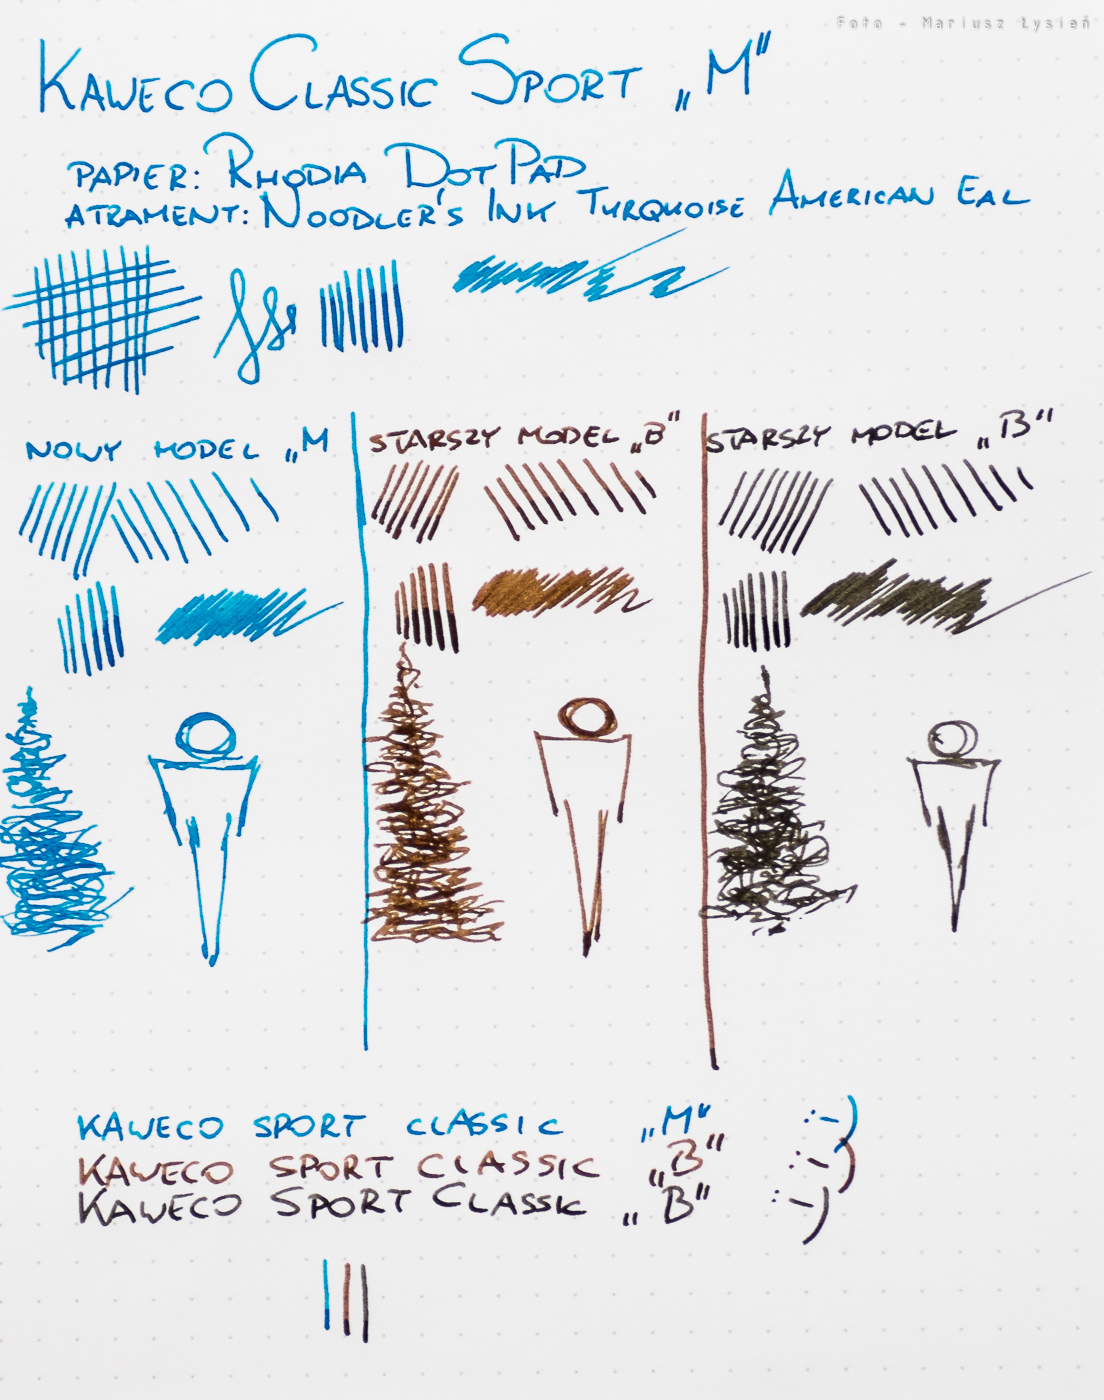 Foto - Mariusz Łysień
KAWECO CLASSIC SPORT „M”
PAPIER: RHODIA DOT PAD
ATRAMENT: NOODLER'S INK TURQUOISE AMERICAN EAL
NOWY MODEL „M
STARSZY MODEL „B”
STARSZY MODEL „B”
KAWECO SPORT CLASSIC „M” :-)
KAWECO SPORT CLASSIC „B” :-)
KAWECO SPORT CLASSIC „B” :-)